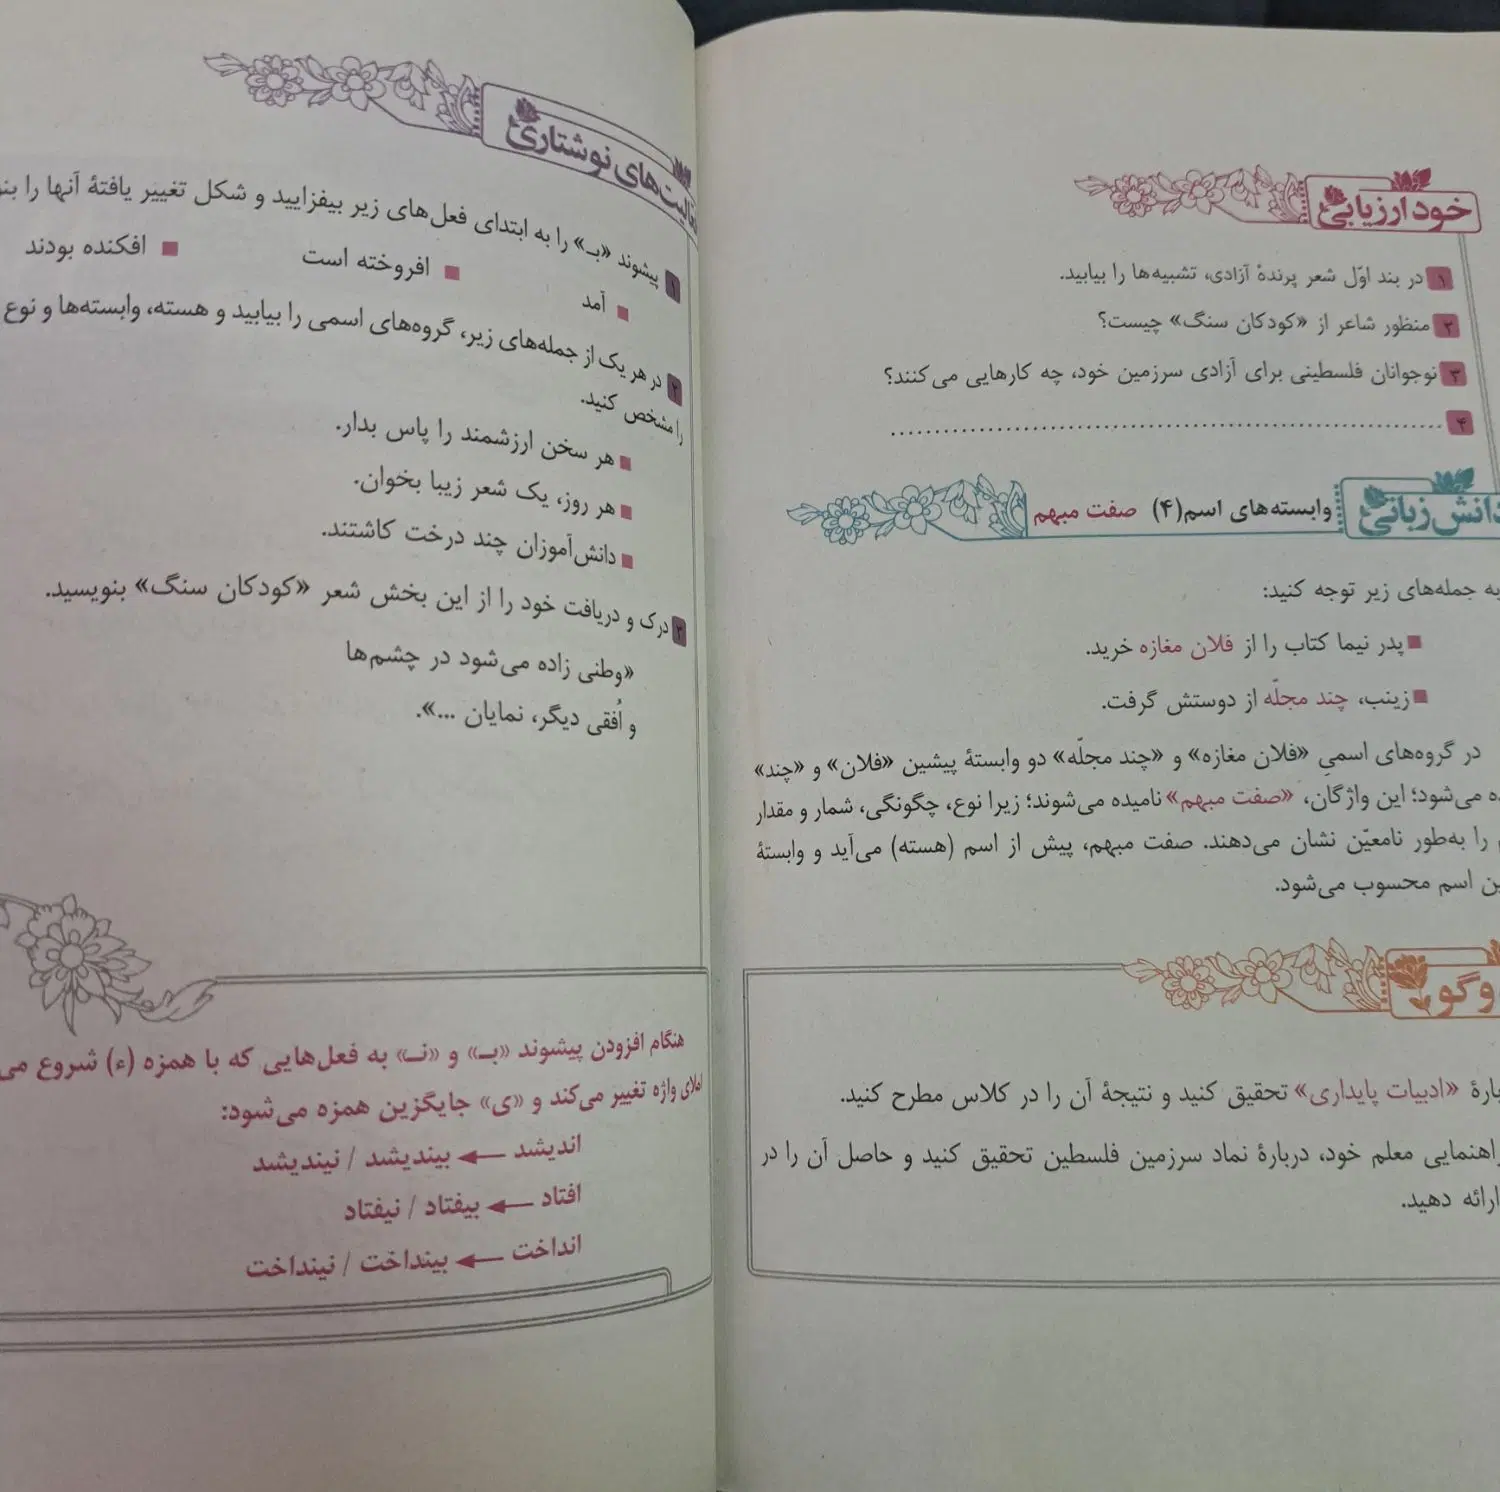 خودارزیابی
۱ در بند اوّل شعر پرندهٔ آزادی، تشبیه‌ها را بیابید.
۲ منظور شاعر از «کودکان سنگ» چیست؟
۳ نوجوانان فلسطینی برای آزادی سرزمین خود، چه کارهایی می‌کنند؟
۴ ........................................................
دانش زبانی وابسته‌های اسم(۴) صفت مبهم
به جمله‌های زیر توجه کنید:
■ پدر نیما کتاب را از فلان مغازه خرید.
■ زینب، چند مجلّه از دوستش گرفت.
در گروه‌های اسمیِ «فلان مغازه» و «چند مجلّه» دو وابستهٔ پیشین «فلان» و «چند»
می‌شود؛ این واژگان، «صفت مبهم» نامیده می‌شوند؛ زیرا نوع، چگونگی، شمار و مقدار
را به‌طور نامعیّن نشان می‌دهند. صفت مبهم، پیش از اسم (هسته) می‌آید و وابستهٔ
اسم محسوب می‌شود.
وگو
«ادبیات پایداری» تحقیق کنید و نتیجهٔ آن را در کلاس مطرح کنید.
معلم خود، دربارهٔ نماد سرزمین فلسطین تحقیق کنید و حاصل آن را در
ارائه دهید.
نوشتاری
۱ پیشوند «بـ» را به ابتدای فعل‌های زیر بیفزایید و شکل تغییر یافتهٔ آنها را
■ آمد ■ افروخته است ■ افکنده بودند
۲ در هر یک از جمله‌های زیر، گروه‌های اسمی را بیابید و هسته، وابسته‌ها و نوع
را مشخص کنید.
■ هر سخن ارزشمند را پاس بدار.
■ هر روز، یک شعر زیبا بخوان.
■ دانش‌آموزان چند درخت کاشتند.
۳ درک و دریافت خود را از این بخش شعر «کودکان سنگ» بنویسید.
«وطنی زاده می‌شود در چشم‌ها
و اُفقی دیگر، نمایان ...».
هنگام افزودن پیشوند «بـ» و «نـ» به فعل‌هایی که با همزه (ء) شروع
املای واژه تغییر می‌کند و «ی» جایگزین همزه می‌شود:
اندیشد ← بیندیشد / نیندیشد
افتاد ← بیفتاد / نیفتاد
انداخت ← بینداخت / نینداخت